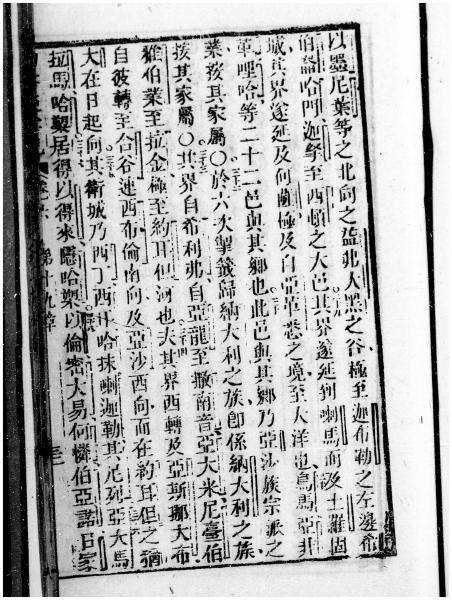 以墨尼葉等之北向之益弗大黑之谷極至迦布勒之左邊希
伯崙哈門迦拏至西頓之大邑其界遂延到喇馬而及土羅固
城其界遂延及何薩極及自亞革卷之境至大洋也烏馬亞非
革哩哈等二十二邑與其鄉也此邑與其鄉乃亞沙族宗派之
業按其家屬○於六次掣籤歸納大利之族即係納大利之族
按其家屬○其界自希利弗自亞龍至撒南音亞大米尼臺伯
雅伯業至拉金極至約耳但河也夫其界西轉及亞斯那大布
自彼轉至合谷連西布倫南向及亞沙西向而在約耳但之猶
大在日起向其衛城乃西丁西耳哈抹喇迦勒其尼列亞大馬
拉馬哈製居得以得來隱哈製以倫密大易何憐伯亞諾日家
第十九章